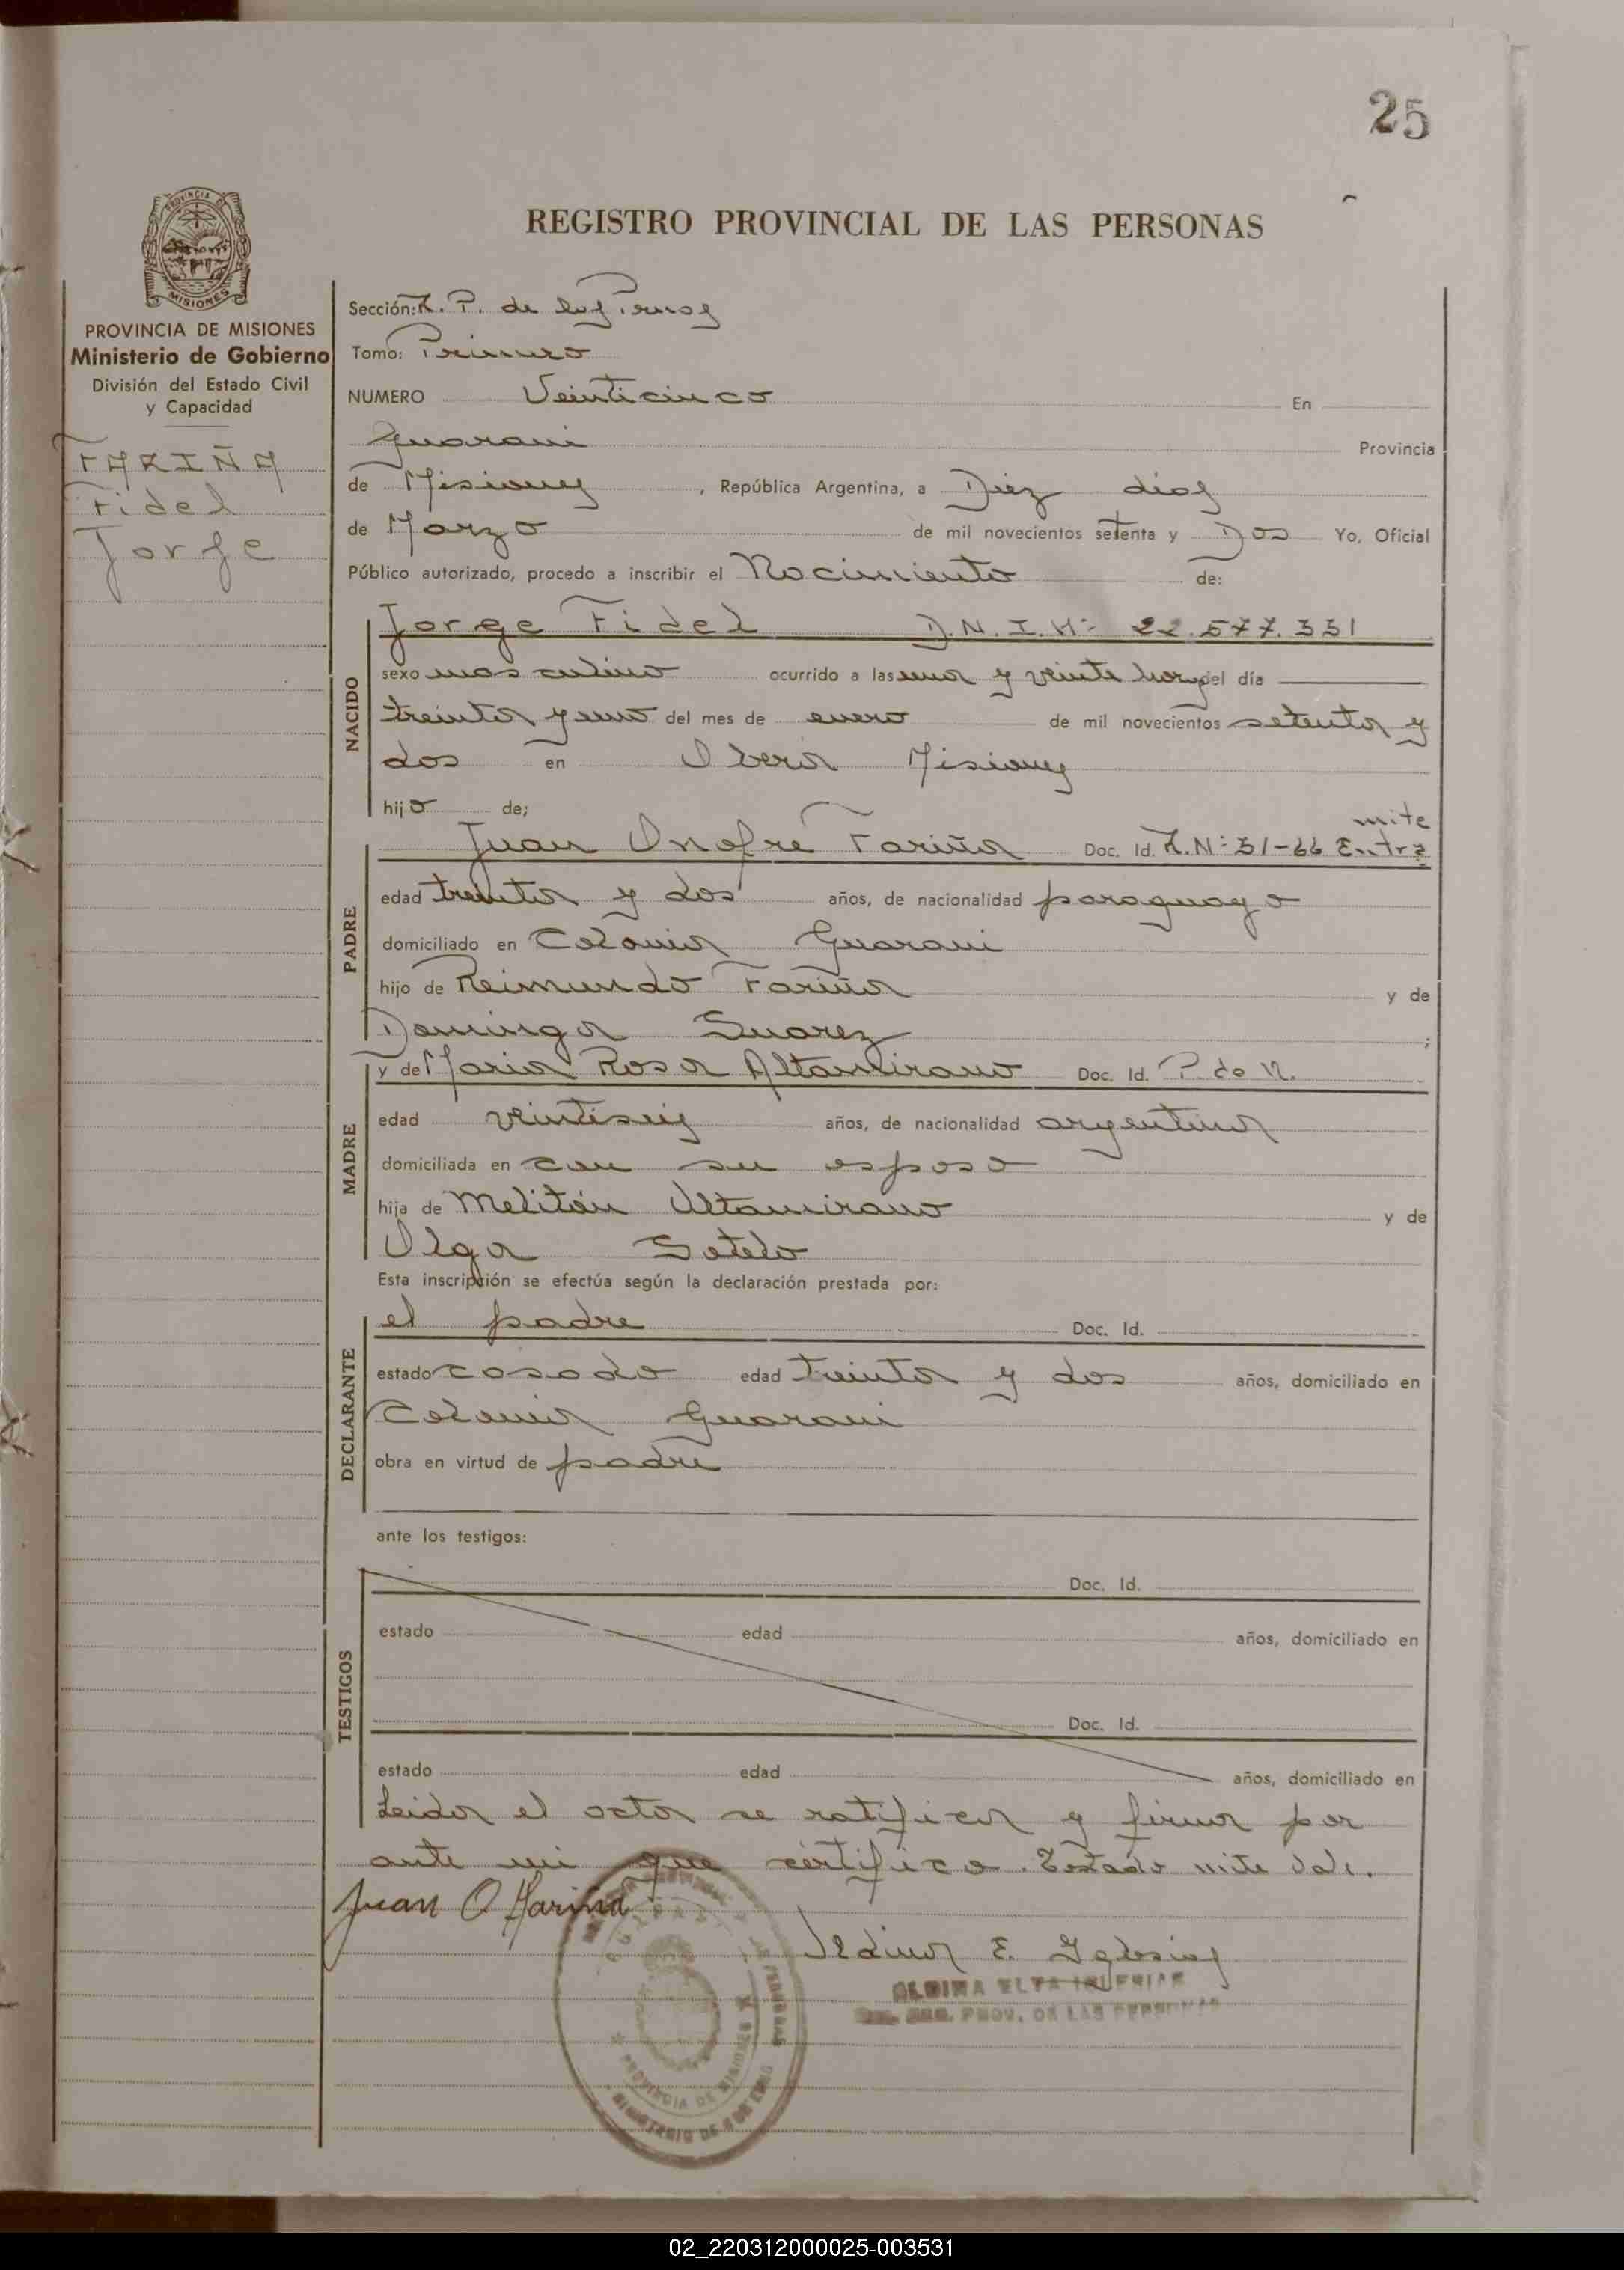 25
REGISTRO PROVINCIAL DE LAS PERSONAS
PROVINCIA DE MISIONES
Ministerio de Gobierno
División del Estado Civil
y Capacidad
FARIÑA
Fidel
Jorge
Sección: R. P. de las
Tomo: Primero
NUMERO Veinticinco En
Guarani Provincia
de Misiones, República Argentina, a Diez dias
de Marzo de mil novecientos setenta y Dos Yo, Oficial
Público autorizado, procedo a inscribir el Nacimiento de:
NACIDO
Jorge Fidel D.N.I.Nº 22.577.331
sexo masculino ocurrido a las una y veinte horas del día
treinta y uno del mes de enero de mil novecientos setenta y
dos en Obera Misiones
hijo de;
PADRE
mite
Juan Onofre Fariña Doc. Id.
edad treinta y dos años, de nacionalidad paraguayo
domiciliado en Colonia Guarani
hijo de Reimundo Fariña y de
Dominga Suarez ;
MADRE
y de Maria Rosa Altamirano Doc. Id. P. de N.
edad veintiseis años, de nacionalidad argentina
domiciliada en con su esposo
hija de Melitón Altamirano y de
Olga Sotelo
Esta inscripción se efectúa según la declaración prestada por:
DECLARANTE
el padre Doc. Id.
estado casado edad treinta y dos años, domiciliado en
Colonia Guarani
obra en virtud de padre
ante los testigos:
TESTIGOS
Doc. Id.
estado edad años, domiciliado en
Doc. Id.
estado edad años, domiciliado en
Leida el acta se ratifica y firma por
ante mi que certifico. Testado mite vale.
Juan O Fariña
Aldina E. Iglesias
PROV. DE LAS PERSONAS
PROVINCIA DE MISIONES
MINISTERIO DE GOBIERNO
02_220312000025-003531